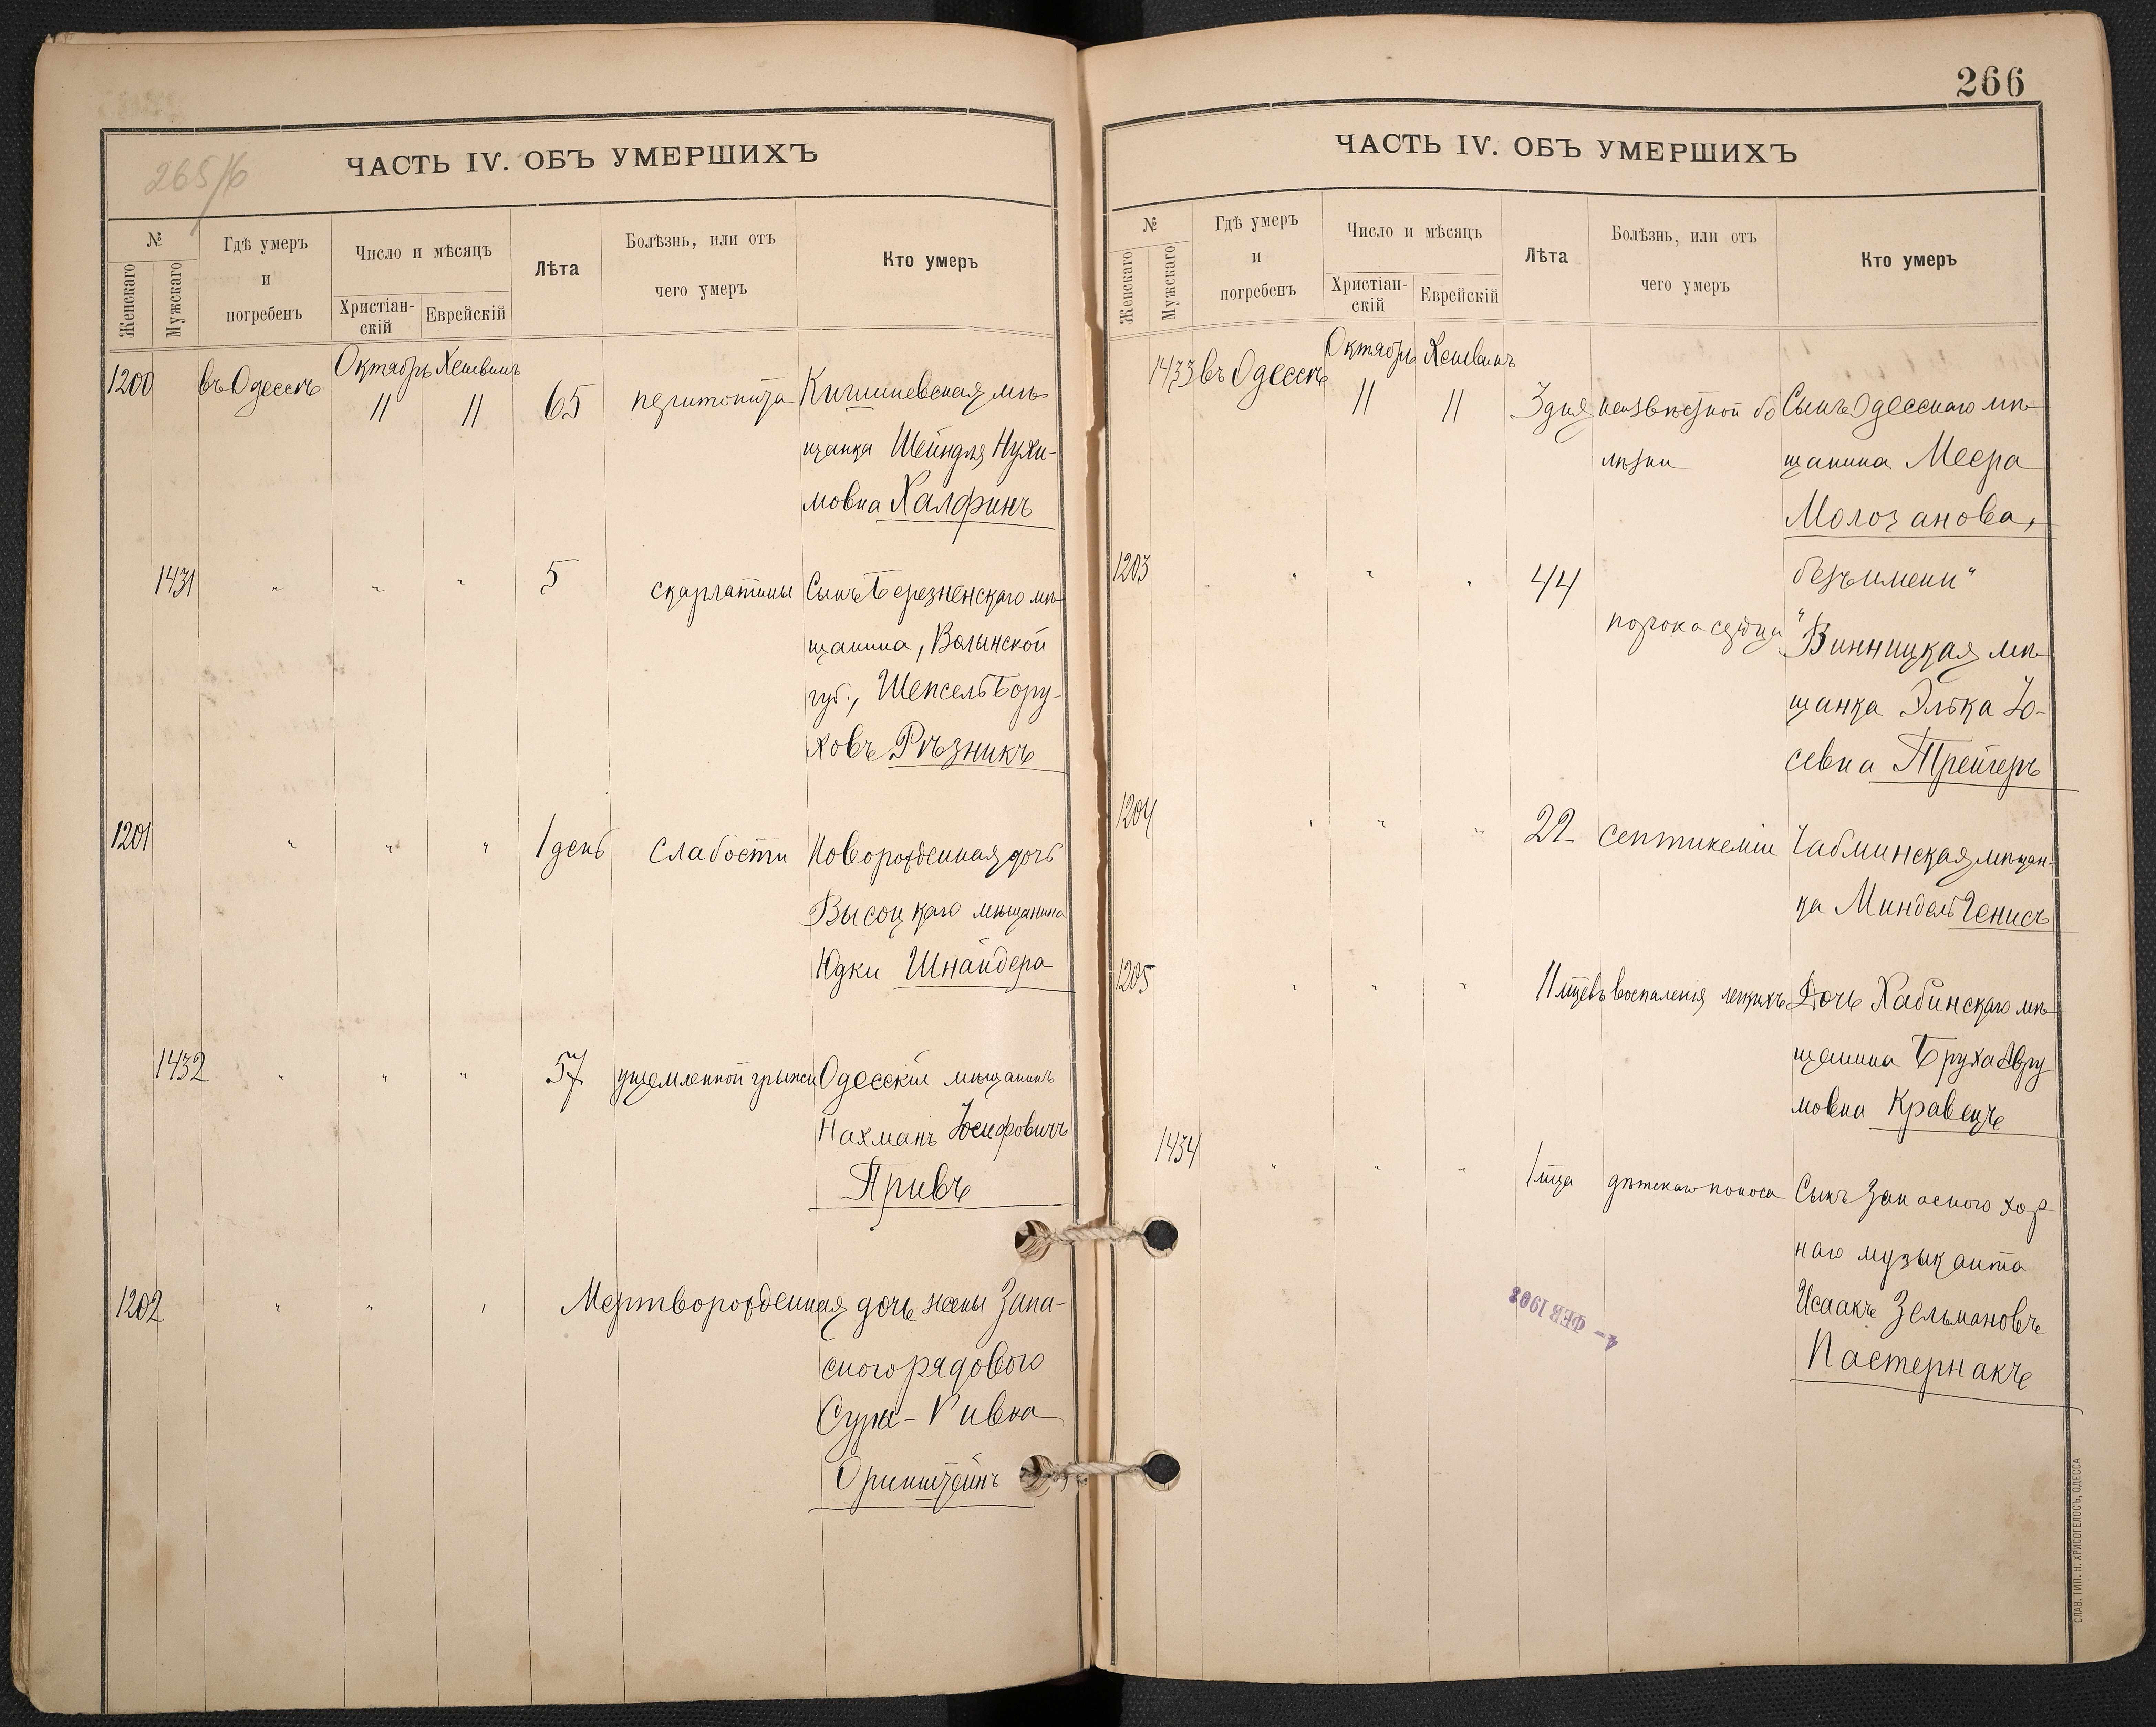 265/б
ЧАСТЬ IV. ОБЪ УМЕРШИХЪ
№
Женскаго
Мужскаго
Гдѣ умеръ
и
погребенъ
Число и мѣсяцъ
Христіан-
скій
Еврейскій
Лѣта
Болѣзнь, или отъ
чего умеръ
Кто умеръ
1200 въ Одессѣ Октябрь Хешвинъ
11 11 65 перитонита Кишиневская мѣ-
щанка Шейндля Нухи-
мовна Халфинъ
1431 " " " 5 скарлатины Сынъ Березненскаго мѣ-
щанина, Волынской
губ., Шепсель Бору-
ховъ Рѣзникъ
1201 " " " 1 день слабости Новорожденная дочь
Высоцкаго мѣщанина
Юдки Шнайдера
1432 " " " 57 ущемленной грыжи Одесскій мѣщанинъ
Нахманъ Іосифовичъ
Привъ
1202 " " " Мертворожденная дочь жены Запа-
сного рядового
Суры-Ривка
Оринштейнъ
266
ЧАСТЬ IV. ОБЪ УМЕРШИХЪ
№
Женскаго
Мужскаго
Гдѣ умеръ
и
погребенъ
Число и мѣсяцъ
Христіан-
скій
Еврейскій
Лѣта
Болѣзнь, или отъ
чего умеръ
Кто умеръ
1433 въ Одессѣ Октябрь Хешвинъ
11 11 3 дня неизвѣстной бо Сынъ Одесскаго мѣ-
лѣзни щанина Меера
Молозанова,
1203 " " " 44 безъ имени"
порока сердца "Винницкая мѣ-
щанка Элька Іо-
севна Трейгеръ
1204 " " " 22 септикеміи Чабминская мѣщан-
ка Миндель Ченисъ
1205 " " " 11 мцевъ воспаленія легкихъ Дочь Хабинскаго мѣ-
щанина Бруха Авру
мовна Кравецъ
1434 " " " 1 мца дѣтскаго поноса Сынъ Запасного хор
наго музыканта
Исаакъ Зельмановъ
Пастернакъ
4- ФЕВ 1908
СЛАВ. ТИП. Н. ХРИСОГЕЛОСЪ, ОДЕССА